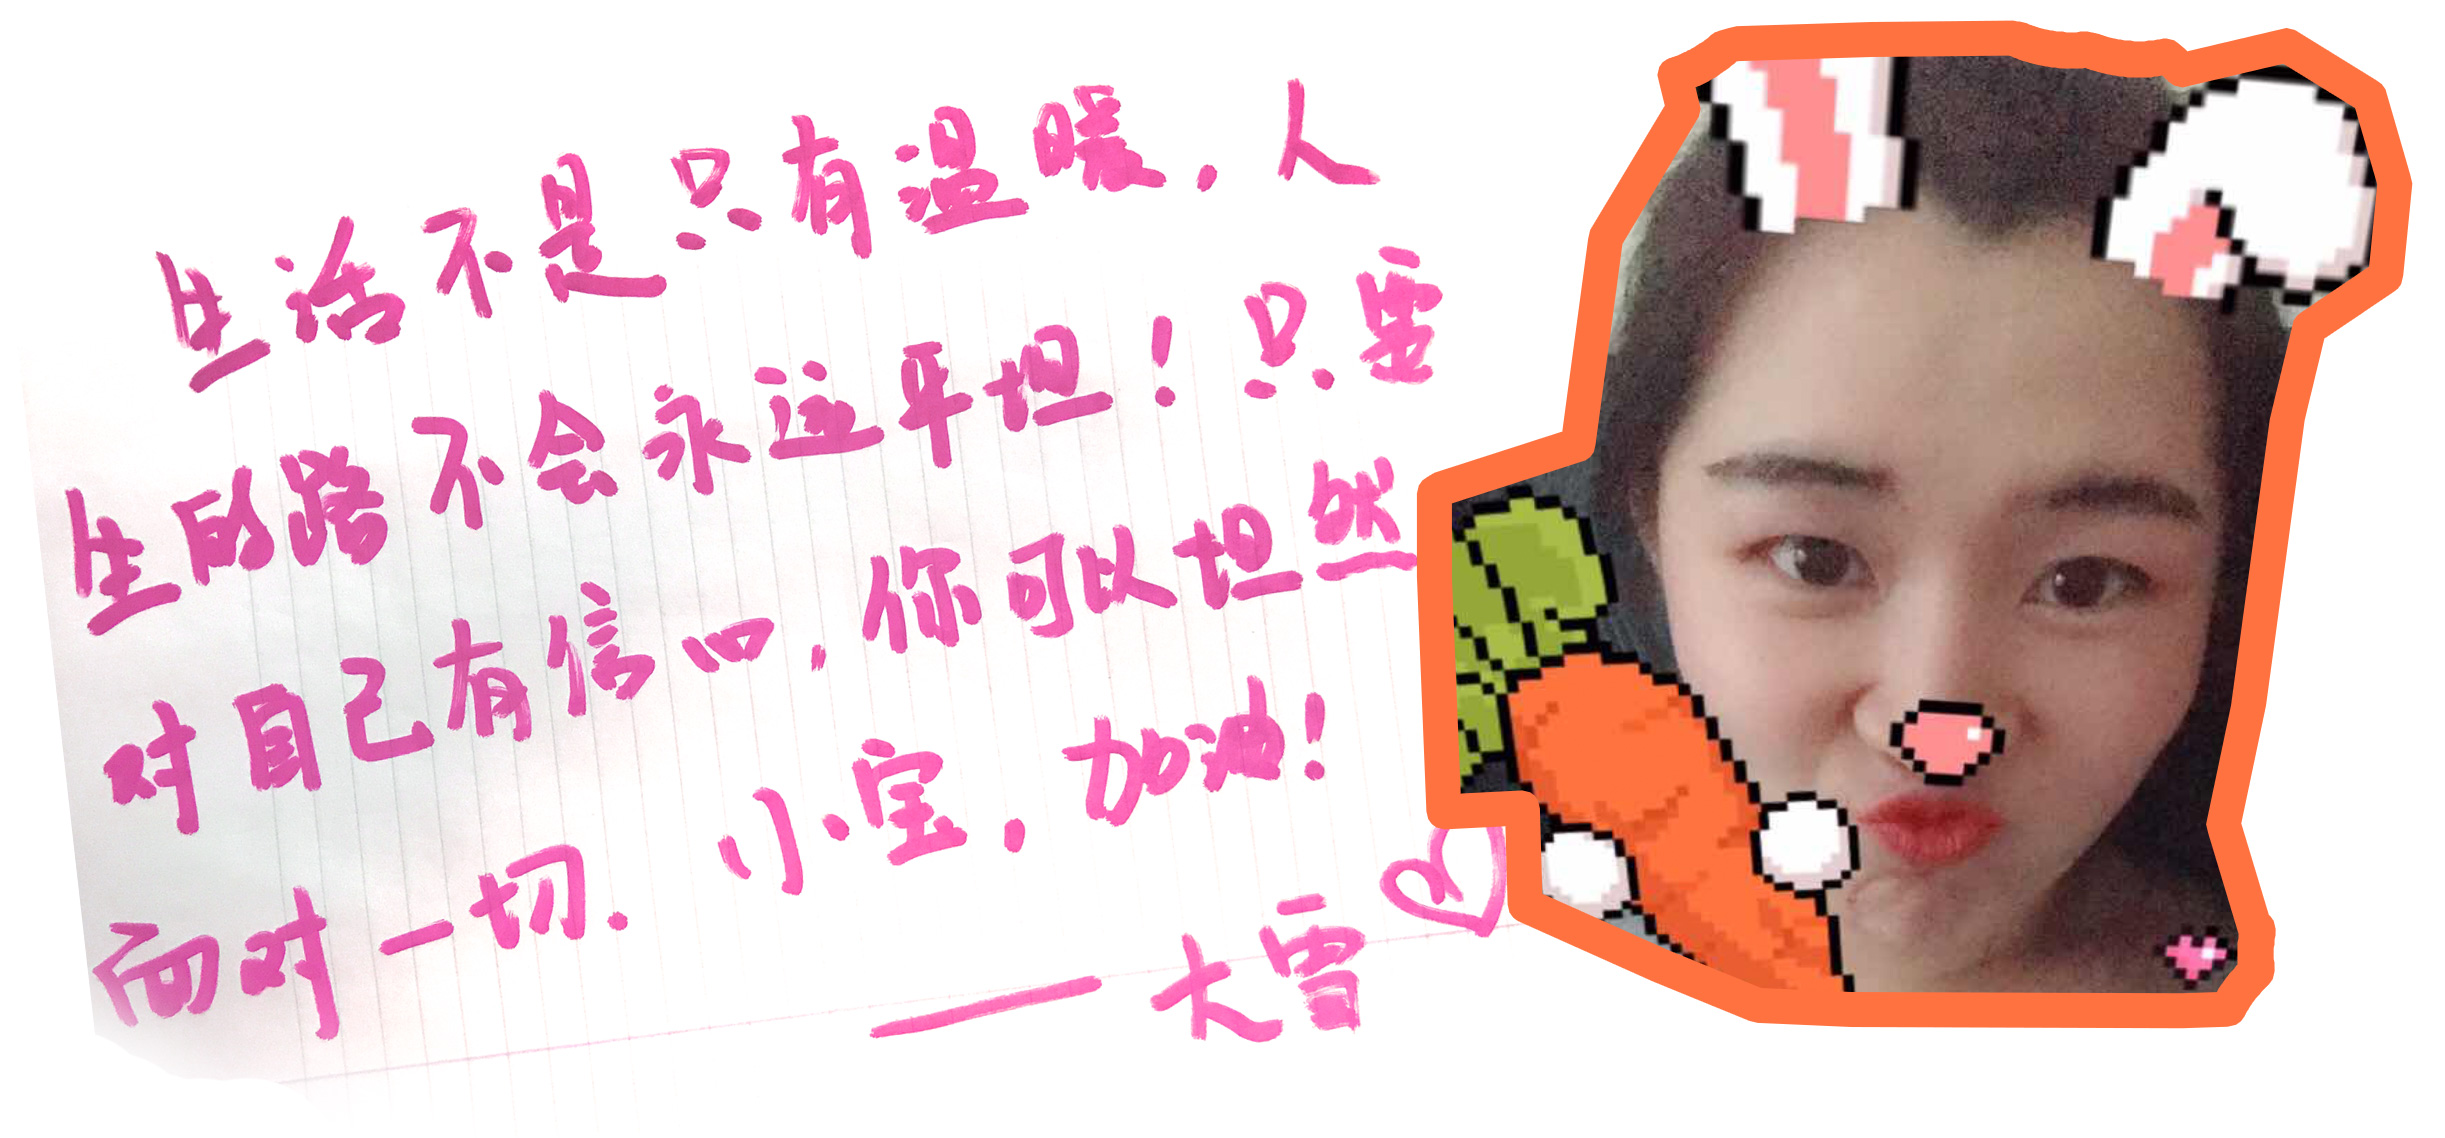 生活不是只有温暖，人
生的路不会永远平坦！只要
对自己有信心，你可以坦然
面对一切. 小宝，加油！
——大雪